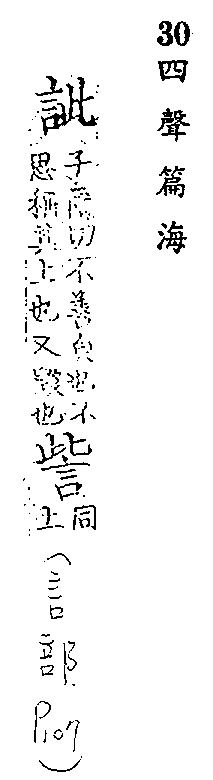 30四聲篇海
訿
子爾切不善皃也不
思稱其上也又毀也
訾
同
上
(言部 P107)